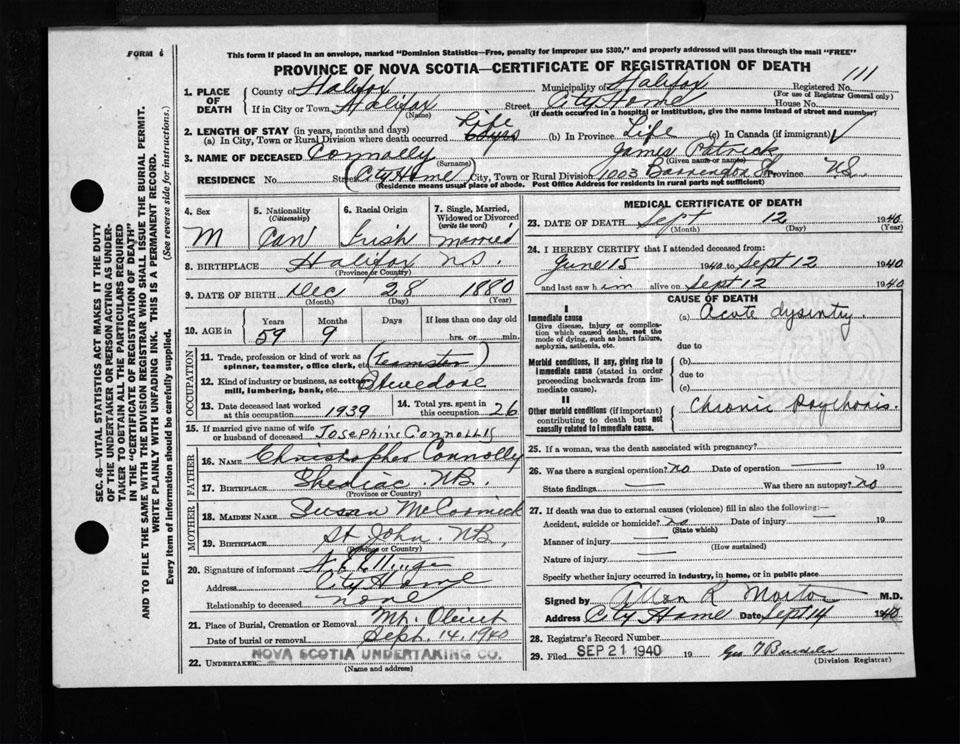 FORM 6
This form if placed in an envelope, marked "Dominion Statistics—Free, penalty for improper use $300," and properly addressed will pass through the mail "FREE"
PROVINCE OF NOVA SCOTIA—CERTIFICATE OF REGISTRATION OF DEATH
111
1. PLACE OF DEATH
County of Halifax Municipality of Halifax Registered No.
(For use of Registrar General only)
If in City or Town Halifax Street City Home House No.
(Name) (If death occurred in a hospital or institution, give the name instead of street and number)
2. LENGTH OF STAY (in years, months and days) Life
(a) In City, Town or Rural Division where death occurred 60 yrs (b) In Province Life (c) In Canada (if immigrant) √
3. NAME OF DECEASED Connolly James Patrick
(Surname) (Given name or names)
RESIDENCE No. Street (City Home City, Town or Rural Division 1003 Barrington St Province N.S.
(Residence means usual place of abode. Post Office Address for residents in rural parts not sufficient)
4. Sex M
5. Nationality (Citizenship) Can
6. Racial Origin Irish
7. Single, Married, Widowed or Divorced (write the word) married
8. BIRTHPLACE Halifax N.S.
(Province or Country)
9. DATE OF BIRTH Dec 28 1880
(Month) (Day) (Year)
10. AGE in Years Months Days If less than one day old
59 9 hrs. or min.
OCCUPATION
11. Trade, profession or kind of work as spinner, teamster, office clerk, etc. (Teamster)
12. Kind of industry or business, as cotton mill, lumbering, bank, etc. Stevedore
13. Date deceased last worked at this occupation 1939
14. Total yrs. spent in this occupation 26
15. If married give name of wife or husband of deceased Josephine Connolly
FATHER
16. NAME Christopher Connolly
17. BIRTHPLACE Shediac N.B.
(Province or Country)
MOTHER
18. MAIDEN NAME Susan McCormick
19. BIRTHPLACE St John. N.B.
(Province or Country)
20. Signature of informant
Address City Home
Relationship to deceased none
21. Place of Burial, Cremation or Removal Mt. Olivet
Date of burial or removal Sept. 14, 1940
22. UNDERTAKER NOVA SCOTIA UNDERTAKING CO.
(Name and address)
MEDICAL CERTIFICATE OF DEATH
23. DATE OF DEATH Sept 12 1940
(Month) (Day) (Year)
24. I HEREBY CERTIFY that I attended deceased from:
June 15 1940 to Sept 12 1940
and last saw him alive on Sept 12 1940
CAUSE OF DEATH
I
Immediate cause
Give disease, injury or complication which caused death, not the mode of dying, such as heart failure, asphyxia, asthenia, etc.
(a) Acute dysintry
due to
Morbid conditions, if any, giving rise to immediate cause (stated in order proceeding backwards from immediate cause).
(b)
due to
(c)
II
Other morbid conditions (important) contributing to death but not causally related to immediate cause.
Chronic Psychosis.
25. If a woman, was the death associated with pregnancy?
26. Was there a surgical operation? no Date of operation — 19
State findings — Was there an autopsy? no
27. If death was due to external causes (violence) fill in also the following:—
Accident, suicide or homicide? no Date of injury — 19
(State which)
Manner of injury —
(How sustained)
Nature of injury —
Specify whether injury occurred in industry, in home, or in public place
Signed by Allan R Morton M.D.
Address City Home Date Sept 14 1940
28. Registrar's Record Number
29. Filed SEP 21 1940 19
(Division Registrar)
SEC. 46—VITAL STATISTICS ACT MAKES IT THE DUTY
OF THE UNDERTAKER OR PERSON ACTING AS UNDERTAKER TO OBTAIN ALL THE PARTICULARS REQUIRED
IN THE "CERTIFICATE OF REGISTRATION OF DEATH" AND TO FILE THE SAME WITH THE DIVISION REGISTRAR WHO SHALL ISSUE THE BURIAL PERMIT.
WRITE PLAINLY WITH UNFADING INK. THIS IS A PERMANENT RECORD.
Every item of information should be carefully supplied. (See reverse side for instructions.)